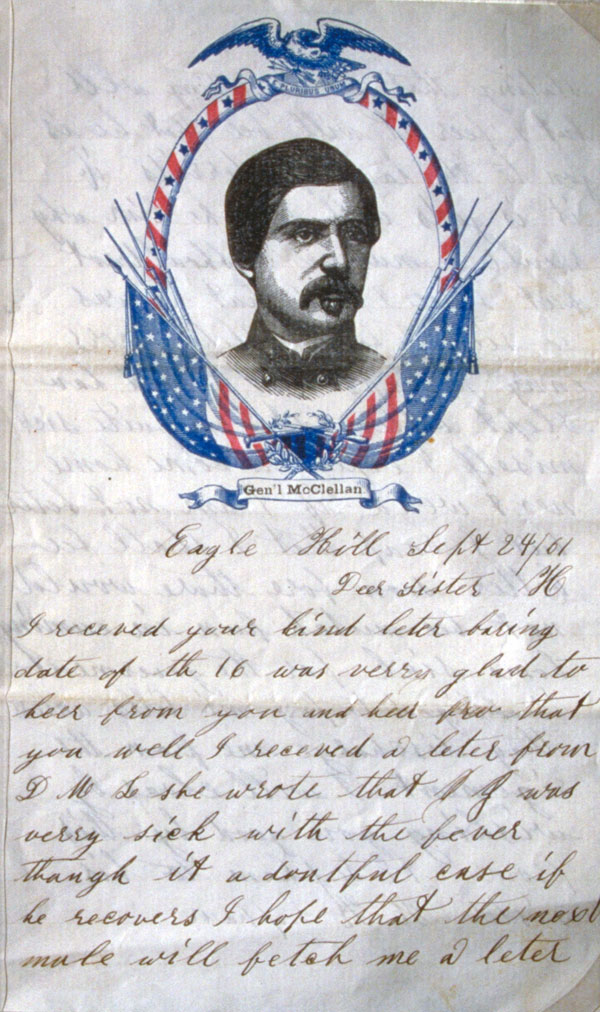 E PLURIBUS UNUM
Gen'l McClellan
Eagle Hill Sept 24/61
Deer Sister H
I receved your kind leter baring
date of th 16 was verry glad to
heer from you and heer fro that
you well I receved a leter from
D M L she wrote that J was
verry sick with the fever
though it a dontful case if
he recovers I hope that the next
male will fetch me a leter